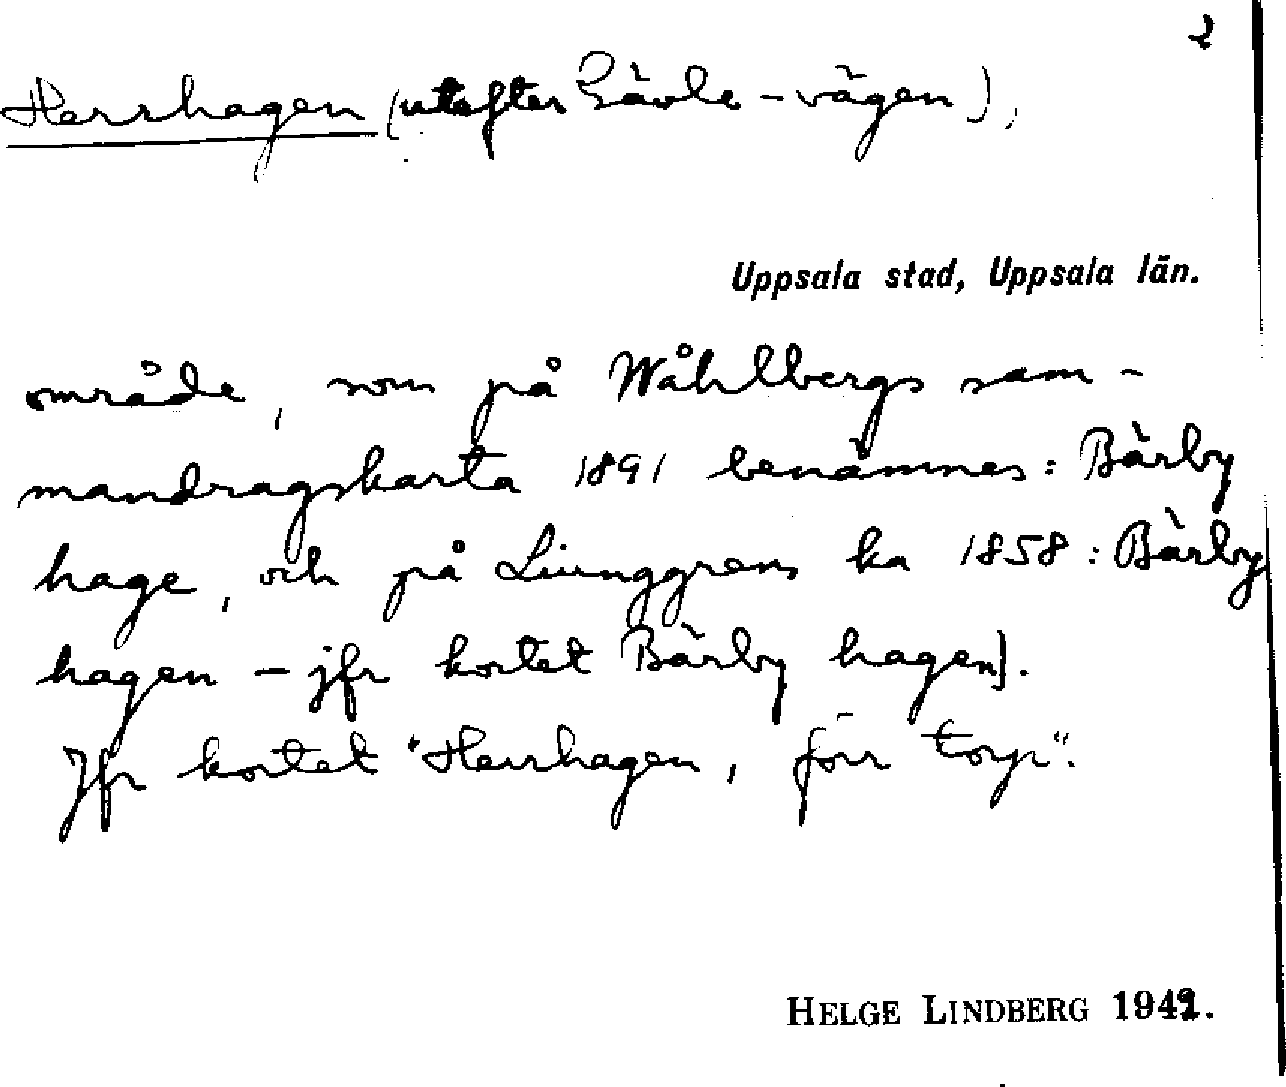 2
Herrhagen (utefter Gävle-vägen),
Uppsala stad, Uppsala län.
område, som på Wåhlbergs sam-
mandragskarta 1891 benämnes: Bärby
hage, och på Ljunggrens ka 1858: Bärby
hagen - jfr kortet Bärby hagen].
Jfr kortet "Herrhagen, förr torp".
HELGE LINDBERG